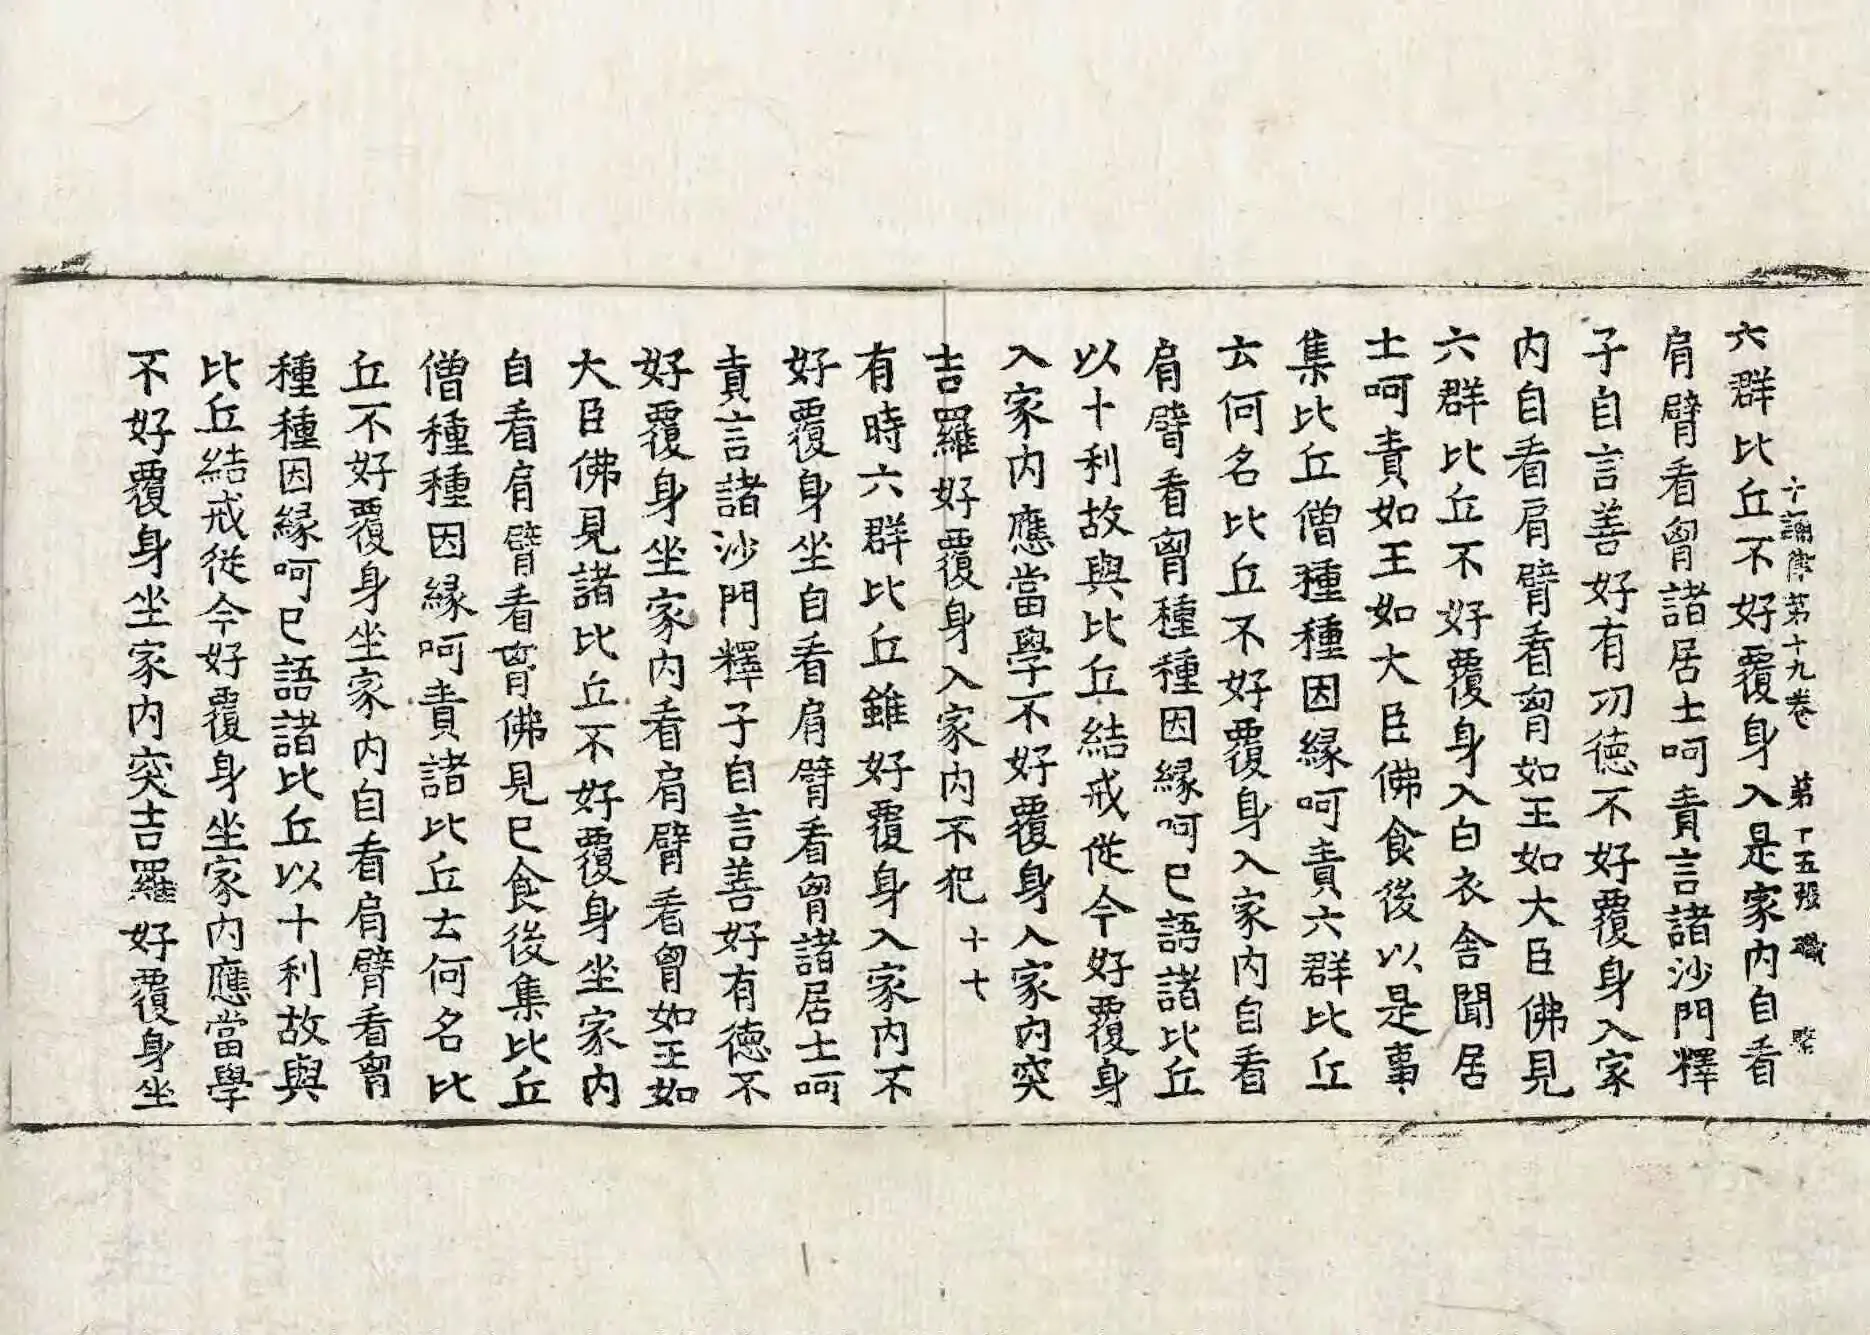 十誦律第十九卷 第十五張 職
六群比丘不好覆身入是家內自看
肩臂看𦚾諸居士呵責言諸沙門釋
子自言善好有㓛德不好覆身入家
內自看肩臂看𦚾如王如大臣佛見
六群比丘不好覆身入白衣舍聞居
士呵責如王如大臣佛食後以是事
集比丘僧種種因緣呵責六群比丘
云何名比丘不好覆身入家內自看
肩臂看𦚾種種因緣呵已語諸比丘
以十利故與比丘結戒從今好覆身
入家內應當學不好覆身入家內突
吉羅好覆身入家內不犯 十七
有時六群比丘雖好覆身入家內不
好覆身坐自看肩臂看𦚾諸居士呵
責言諸沙門釋子自言善好有德不
好覆身坐家內看肩臂看𦚾如王如
大臣佛見諸比丘不好覆身坐家內
自看肩臂看𦚾佛見已食後集比丘
僧種種因緣呵責諸比丘云何名比
丘不好覆身坐家內自看肩臂看𦚾
種種因緣呵已語諸比丘以十利故與
比丘結戒從今好覆身坐家內應當學
不好覆身坐家內突吉羅好覆身坐